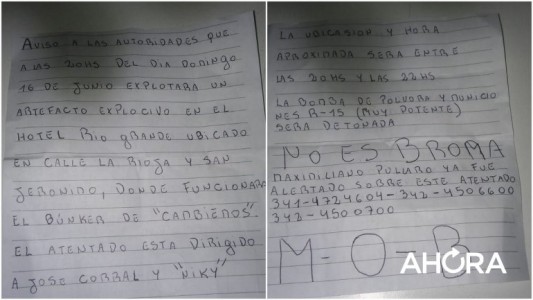 AVISO A LAS AUTORIDADES QUE
A LAS 20HS DEL DIA DOMINGO
16 DE JUNIO EXPLOTARA UN
ARTEFACTO EXPLOCIVO EN EL
HOTEL RIO GRANDE UBICADO
EN CALLE LA RIOJA Y SAN
JERONIMO, DONDE FUNCIONARA
EL BÚNKER DE "CAMBIEMOS"
EL ATENTADO ESTA DIRIGIDO
A JOSE CORRAL Y "NIKY"
LA UBICASION Y HORA
APROXIMADA SERA ENTRE
LAS 20HS Y LAS 22HS
LA BOMBA DE POLVORA Y MUNICIO
NES R-15 (MUY POTENTE)
SERA DETONADA
NO ES BROMA
MAXIMILIANO PULLARO YA FUE
ALERTADO SOBRE ESTE ATENTADO
341-4724604-342-4506600
342-4500700
M-O-B
AHORA